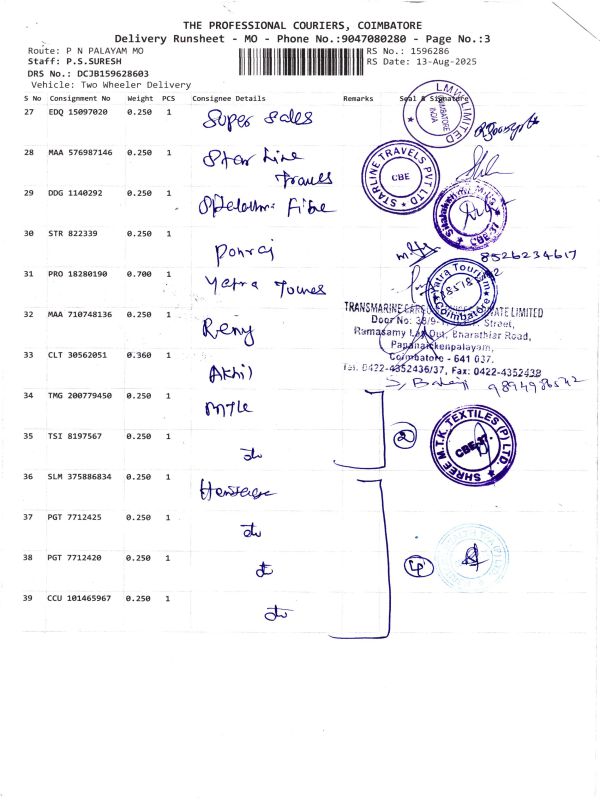 THE PROFESSIONAL COURIERS, COIMBATORE
Delivery Runsheet - MO - Phone No.:9047080280 - Page No.:3
Route: P N PALAYAM MO
RS No.: 1596286
Staff: P.S.SURESH
RS Date: 13-Aug-2025
DRS No.: DCJB159628603
Vehicle: Two Wheeler Delivery
S No Consignment No Weight PCS Consignee Details Remarks Seal & Signature
27 EDQ 15097020 0.250 1 Super Sales
28 MAA 576987146 0.250 1 Star Line Travels
STARLINE TRAVELS PVT LTD
CBE
29 DDG 1140292 0.250 1 Fibre
CBE-37
30 STR 822339 0.250 1 Ponraj
8526234617
31 PRO 18280190 0.700 1 Yatra Toures
Yatra Tourism
Coimbatore
32 MAA 710748136 0.250 1 Remy
TRANSMARINE PRIVATE LIMITED
Street,
Ramasamy Lay Out, Bharathiar Road,
Papanaickenpalayam,
Coimbatore - 641 037.
Tel: 0422-4352436/37, Fax: 0422-4352438
33 CLT 30562051 0.360 1 Akhil
S. Balaji 9894986542
34 TMG 200779450 0.250 1 MTK
SHREE M.T.K TEXTILES (P) LTD.
CBE-37.
35 TSI 8197567 0.250 1 do
2
36 SLM 375886834 0.250 1
37 PGT 7712425 0.250 1 do
38 PGT 7712420 0.250 1 do
4
39 CCU 101465967 0.250 1 do